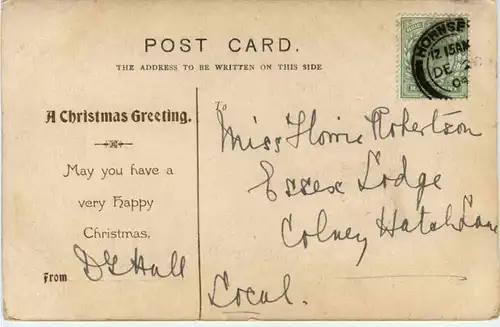 POST CARD.
THE ADDRESS TO BE WRITTEN ON THIS SIDE
HORNSE
12 15AM
DE
A Christmas Greeting.
May you have a
very Happy
Christmas.
From
To
Miss Florrie Robertson
Essex Lodge
Colney Hatch Lane
Local.